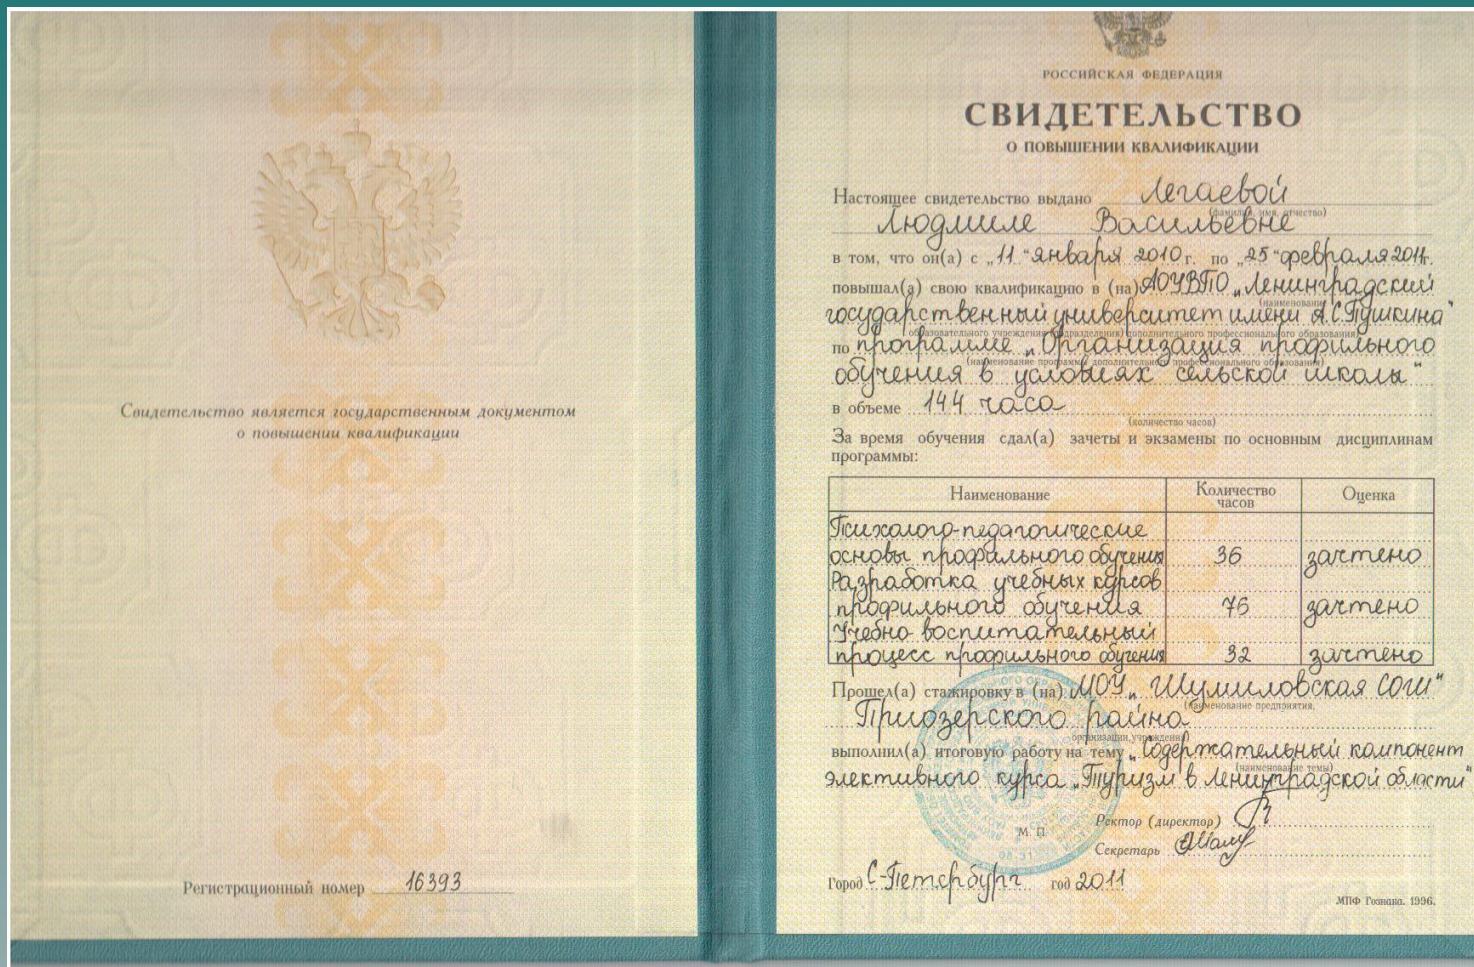 Свидетельство является государственным документом
о повышении квалификации
Регистрационный номер 16393
РОССИЙСКАЯ ФЕДЕРАЦИЯ
СВИДЕТЕЛЬСТВО
О ПОВЫШЕНИИ КВАЛИФИКАЦИИ
Настоящее свидетельство выдано Легаевой
(фамилия, имя, отчество)
Людмиле Васильевне
в том, что он(а) с „11“ января 2010 г. по „25“ февраля 2011 г.
повышал(а) свою квалификацию в (на) АОУВПО „Ленинградский
(наименование
государственный университет имени А.С. Пушкина“
образовательного учреждения (подразделения) дополнительного профессионального образования)
по программе „Организация профильного
(наименование программы дополнительного профессионального образования)
обучения в условиях сельской школы“
в объеме 144 часа
(количество часов)
За время обучения сдал(а) зачеты и экзамены по основным дисциплинам
программы:
Наименование Количество часов Оценка
Психолого-педагогические
основы профильного обучения 36 зачтено
Разработка учебных курсов
профильного обучения 76 зачтено
Учебно воспитательный
процесс профильного обучения 32 зачтено
Прошел(а) стажировку в (на) МОУ „Шумиловская СОШ“
(наименование предприятия,
Приозерского райна
организации, учреждения)
выполнил(а) итоговую работу на тему „Содержательный компонент
(наименование темы)
элективного курса „Туризм в Ленинградской области“
М. П.
Ректор (директор)
Секретарь
Город С-Петербург год 2011
МПФ Гознака. 1996.